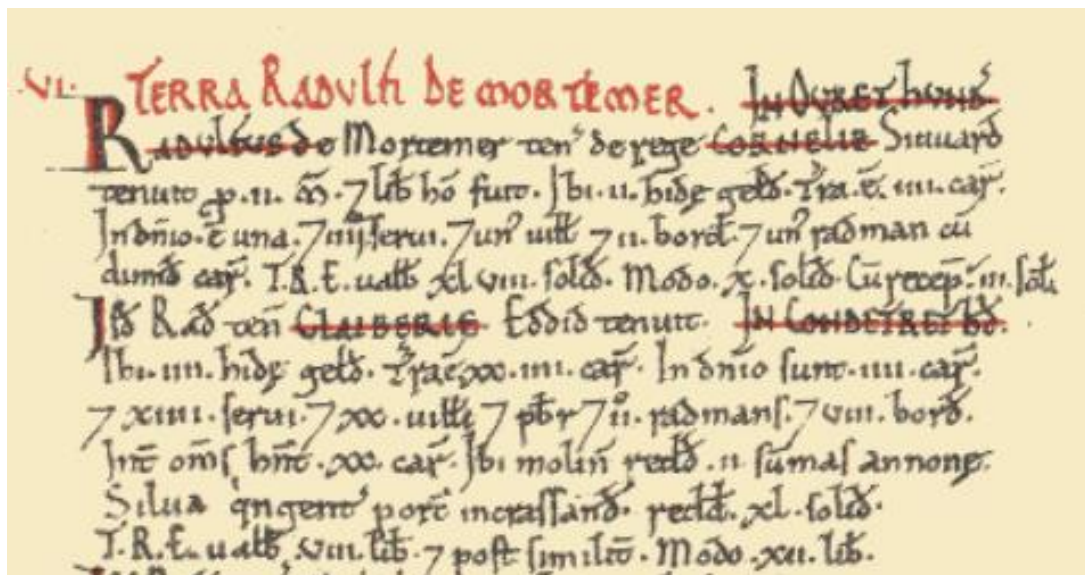 .VI. TERRA RADVLFI DE MORTEMER. IN OVRET HVND'.
RADVLFUS de Mortemer ten' de rege CORNELIE Siuuard
tenuit p .II. M̃. ⁊ lib̃ hõ fuit. Ibi .II. hidę gelđ. Tr̃a .ẽ. IIII. car̃.
In dñio .ẽ una. ⁊ IIII. serui. ⁊ un' uilłs ⁊ II. borđ. ⁊ un' radman cũ
dimiđ car̃. T.R.E. ualb̃ XLVIII. soliđ. Modo .X. soliđ. Cũ recep̃. III. sol̃.
Iđ Rađ teñ CLAIBERIE Eddid tenuit. IN CONDETRET HĐ.
Ibi .IIII. hidę gelđ. Tr̃a ẽ XX.IIII. car̃. In dñio sunt .IIII. car̃.
⁊ XIIII. serui. ⁊ XX. uilłi ⁊ pb̃r ⁊ II. radmans. ⁊ VIII. borđ.
Int̃ om̃s hñt .XX. car̃. Ibi moliñ redđ .II. sũmas annonę.
Silua q̃ngent' porc̃ incrassanđ. redđ. XL. soliđ.
T.R.E. ualb̃ .VIII. lib̃. ⁊ post similit̃. Modo .XII. lib̃.